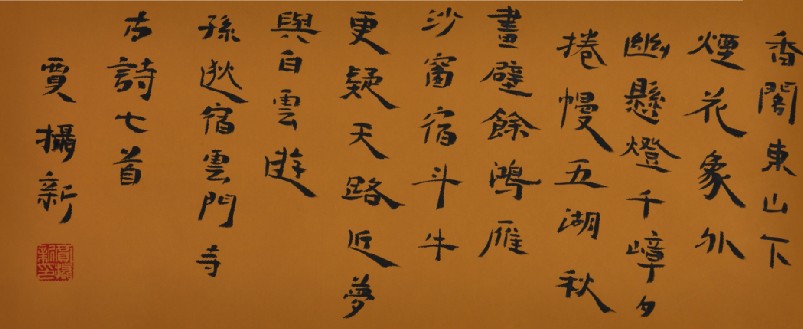 香閣東山下
煙花象外
幽懸燈千嶂夕
捲幔五湖秋
畫壁餘鴻雁
沙窗宿斗牛
更疑天路近夢
與白雲遊
孫逖宿雲門寺
古詩七首
賈攝新